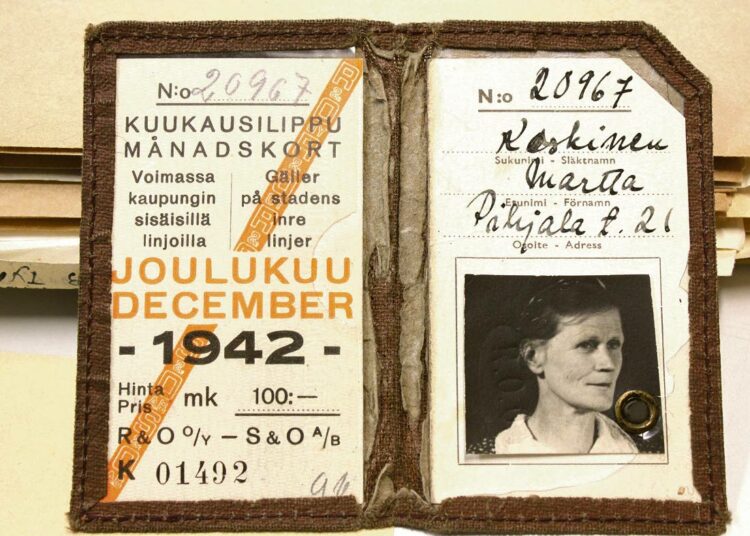 N:o 20967
KUUKAUSILIPPU
MÅNADSKORT
Voimassa
kaupungin
sisäisillä
linjoilla
Gäller
på stadens
inre
linjer
JOULUKUU
DECEMBER
- 1942 -
Hinta
Pris
mk 100:—
R & O O/Y — S & O A/B
K 01492
N:o 20967
Koskinen
Sukunimi - Släktnamn
Martta
Etunimi - Förnamn
Pihjala t. 21
Osoite - Adress